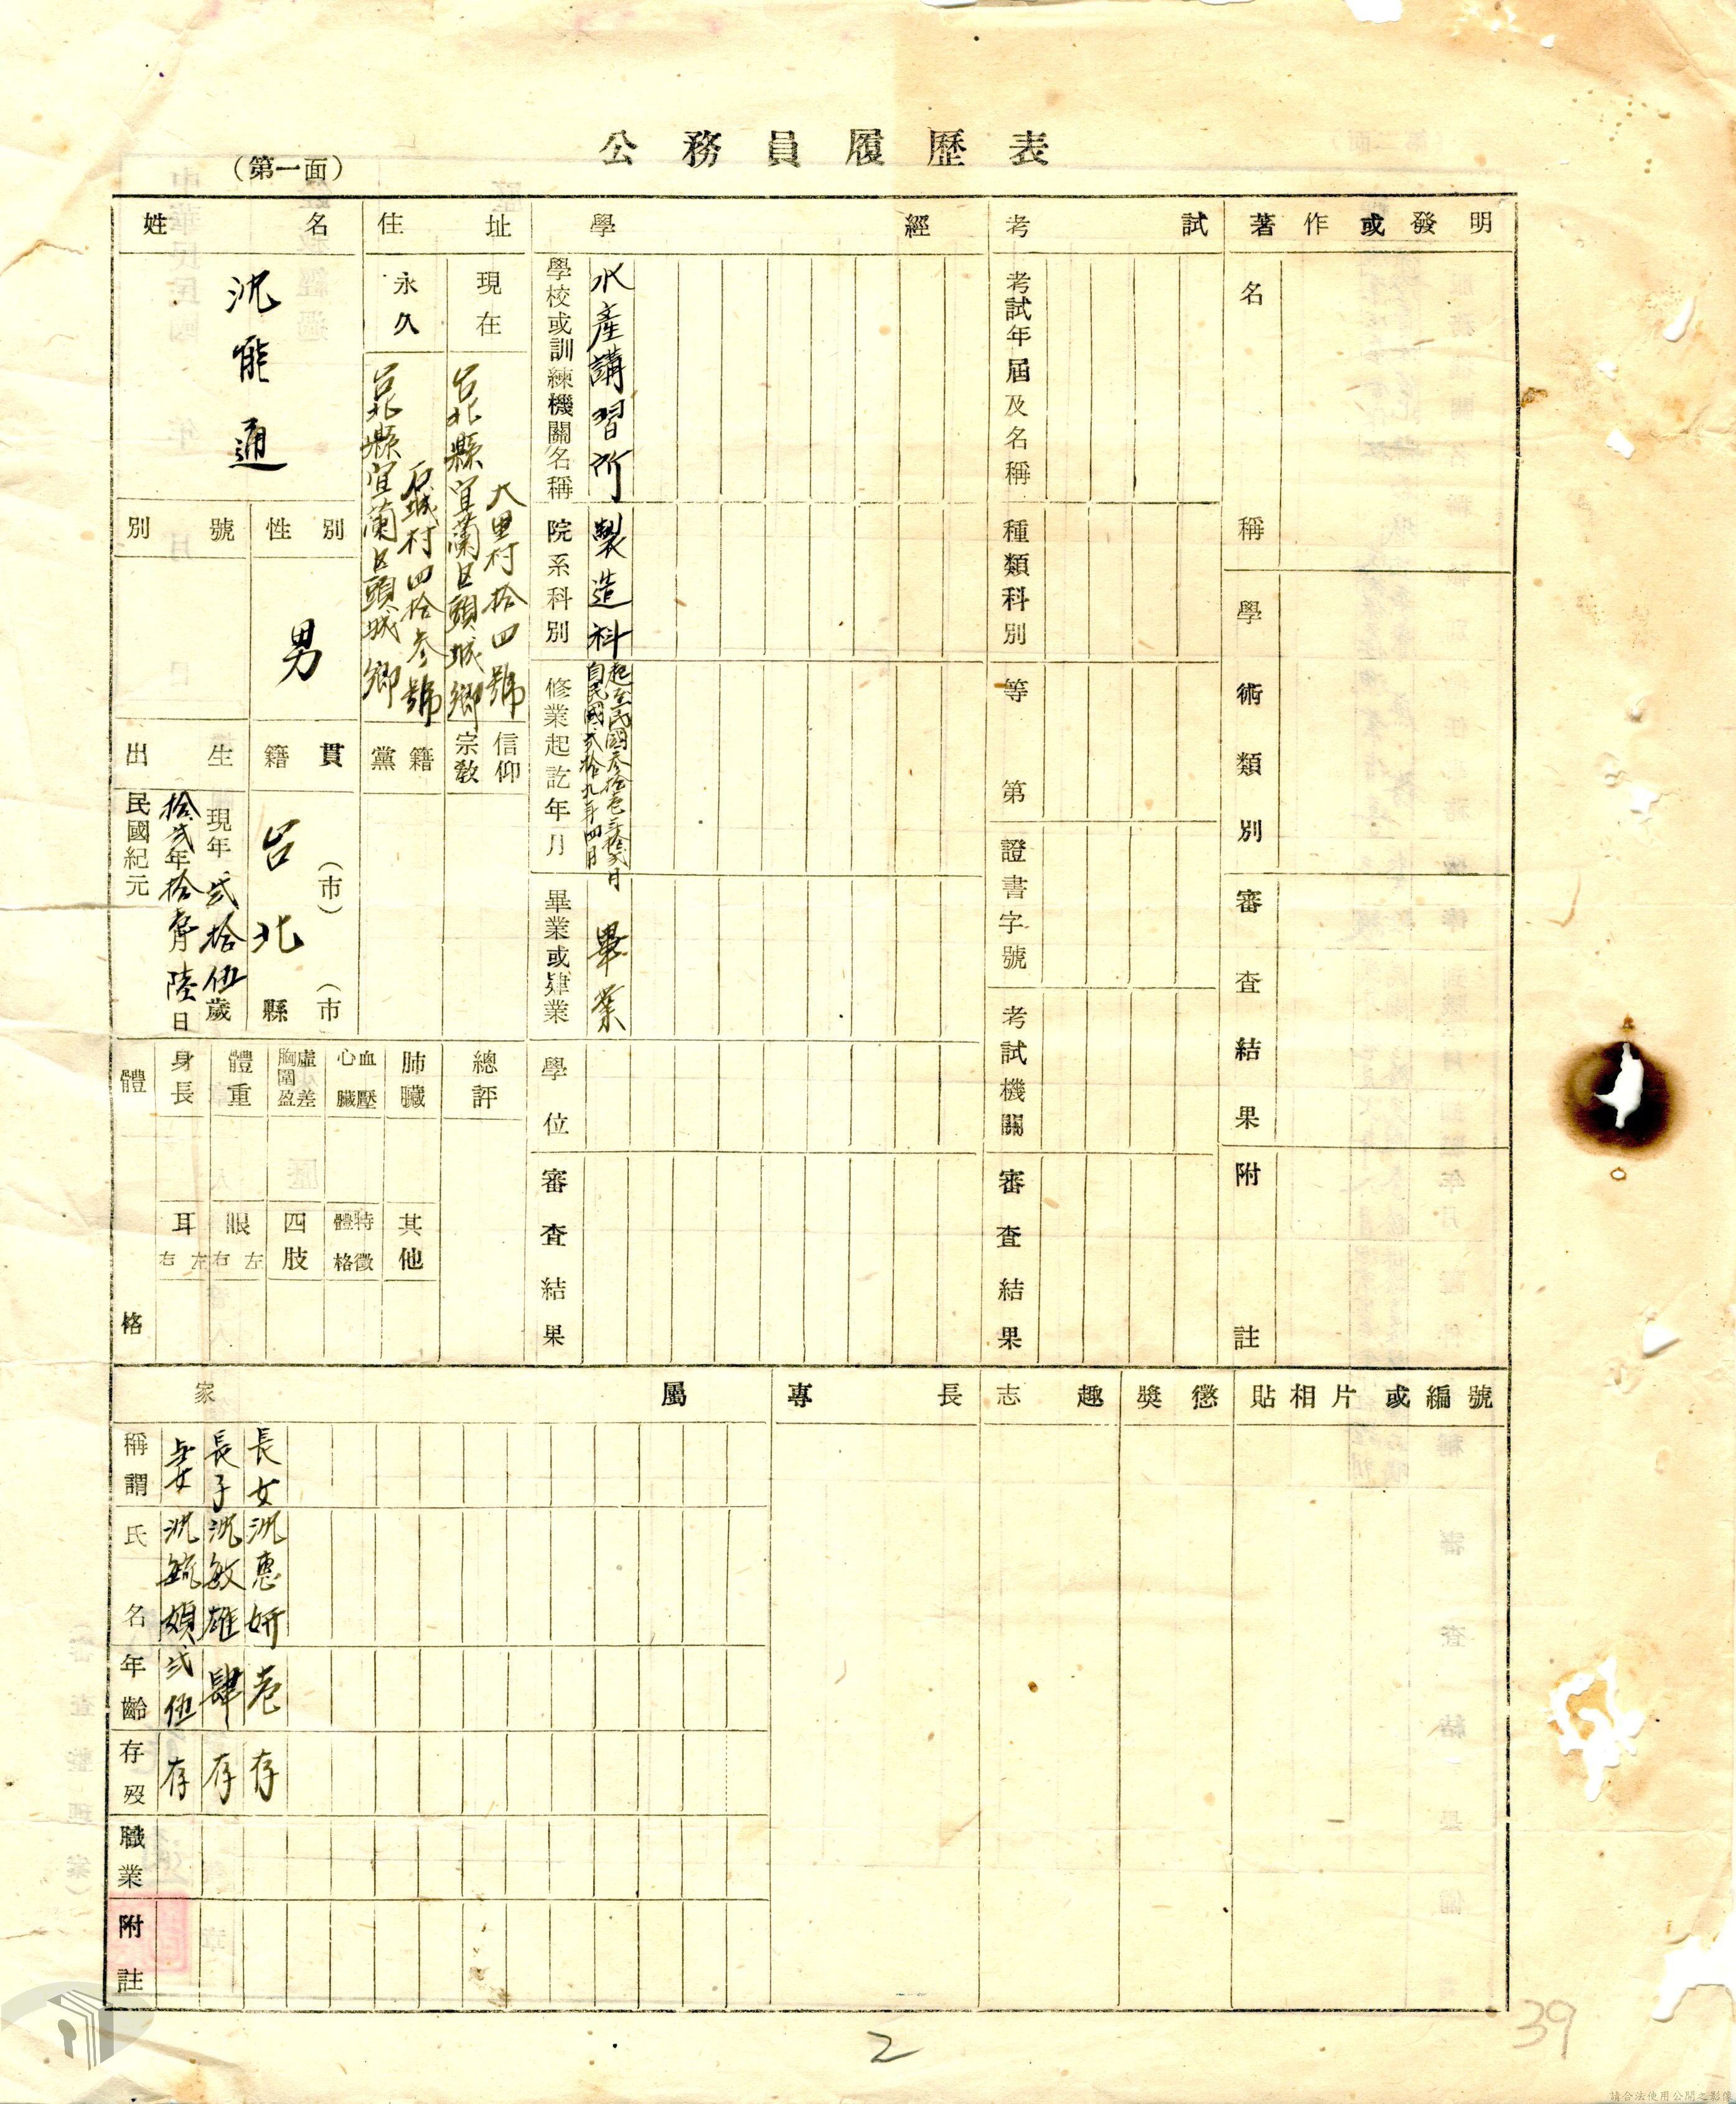 公務員履歷表
（第一面）
姓名
沈能通
別號
性別
男
出生
民國紀元
拾弍年拾月陸日
現年弍拾伍歲
籍貫
台北
（市）
縣（市）
住址
永久
台北縣宜蘭区頭城鄉
石城村四拾叁號
現在
台北縣宜蘭区頭城鄉
大里村拾四號
黨籍
宗教信仰
體格
身長
體重
胸圍虛盈差
心臟血壓
肺臟
總評
耳
右左
眼
右左
四肢
體格特徵
其他
學經
學校或訓練機關名稱
水產講習所
院系科別
製造科
修業起訖年月
自民國弍拾九年四月
起至民國叁拾壱年拾弍月
畢業或肄業
畢業
學位
審查結果
考試
考試年屆及名稱
種類科別
等第
證書字號
考試機關
審查結果
著作或發明
名稱
學術類別
審查結果
附註
家屬
稱謂
妻
長子
長女
氏名
沈
沈敏雄
沈惠妍
年齡
弍伍
肆
壱
存歿
存
存
存
職業
附註
專長
志趣
獎懲
貼相片或編號
2
39
請合法使用公開之影像